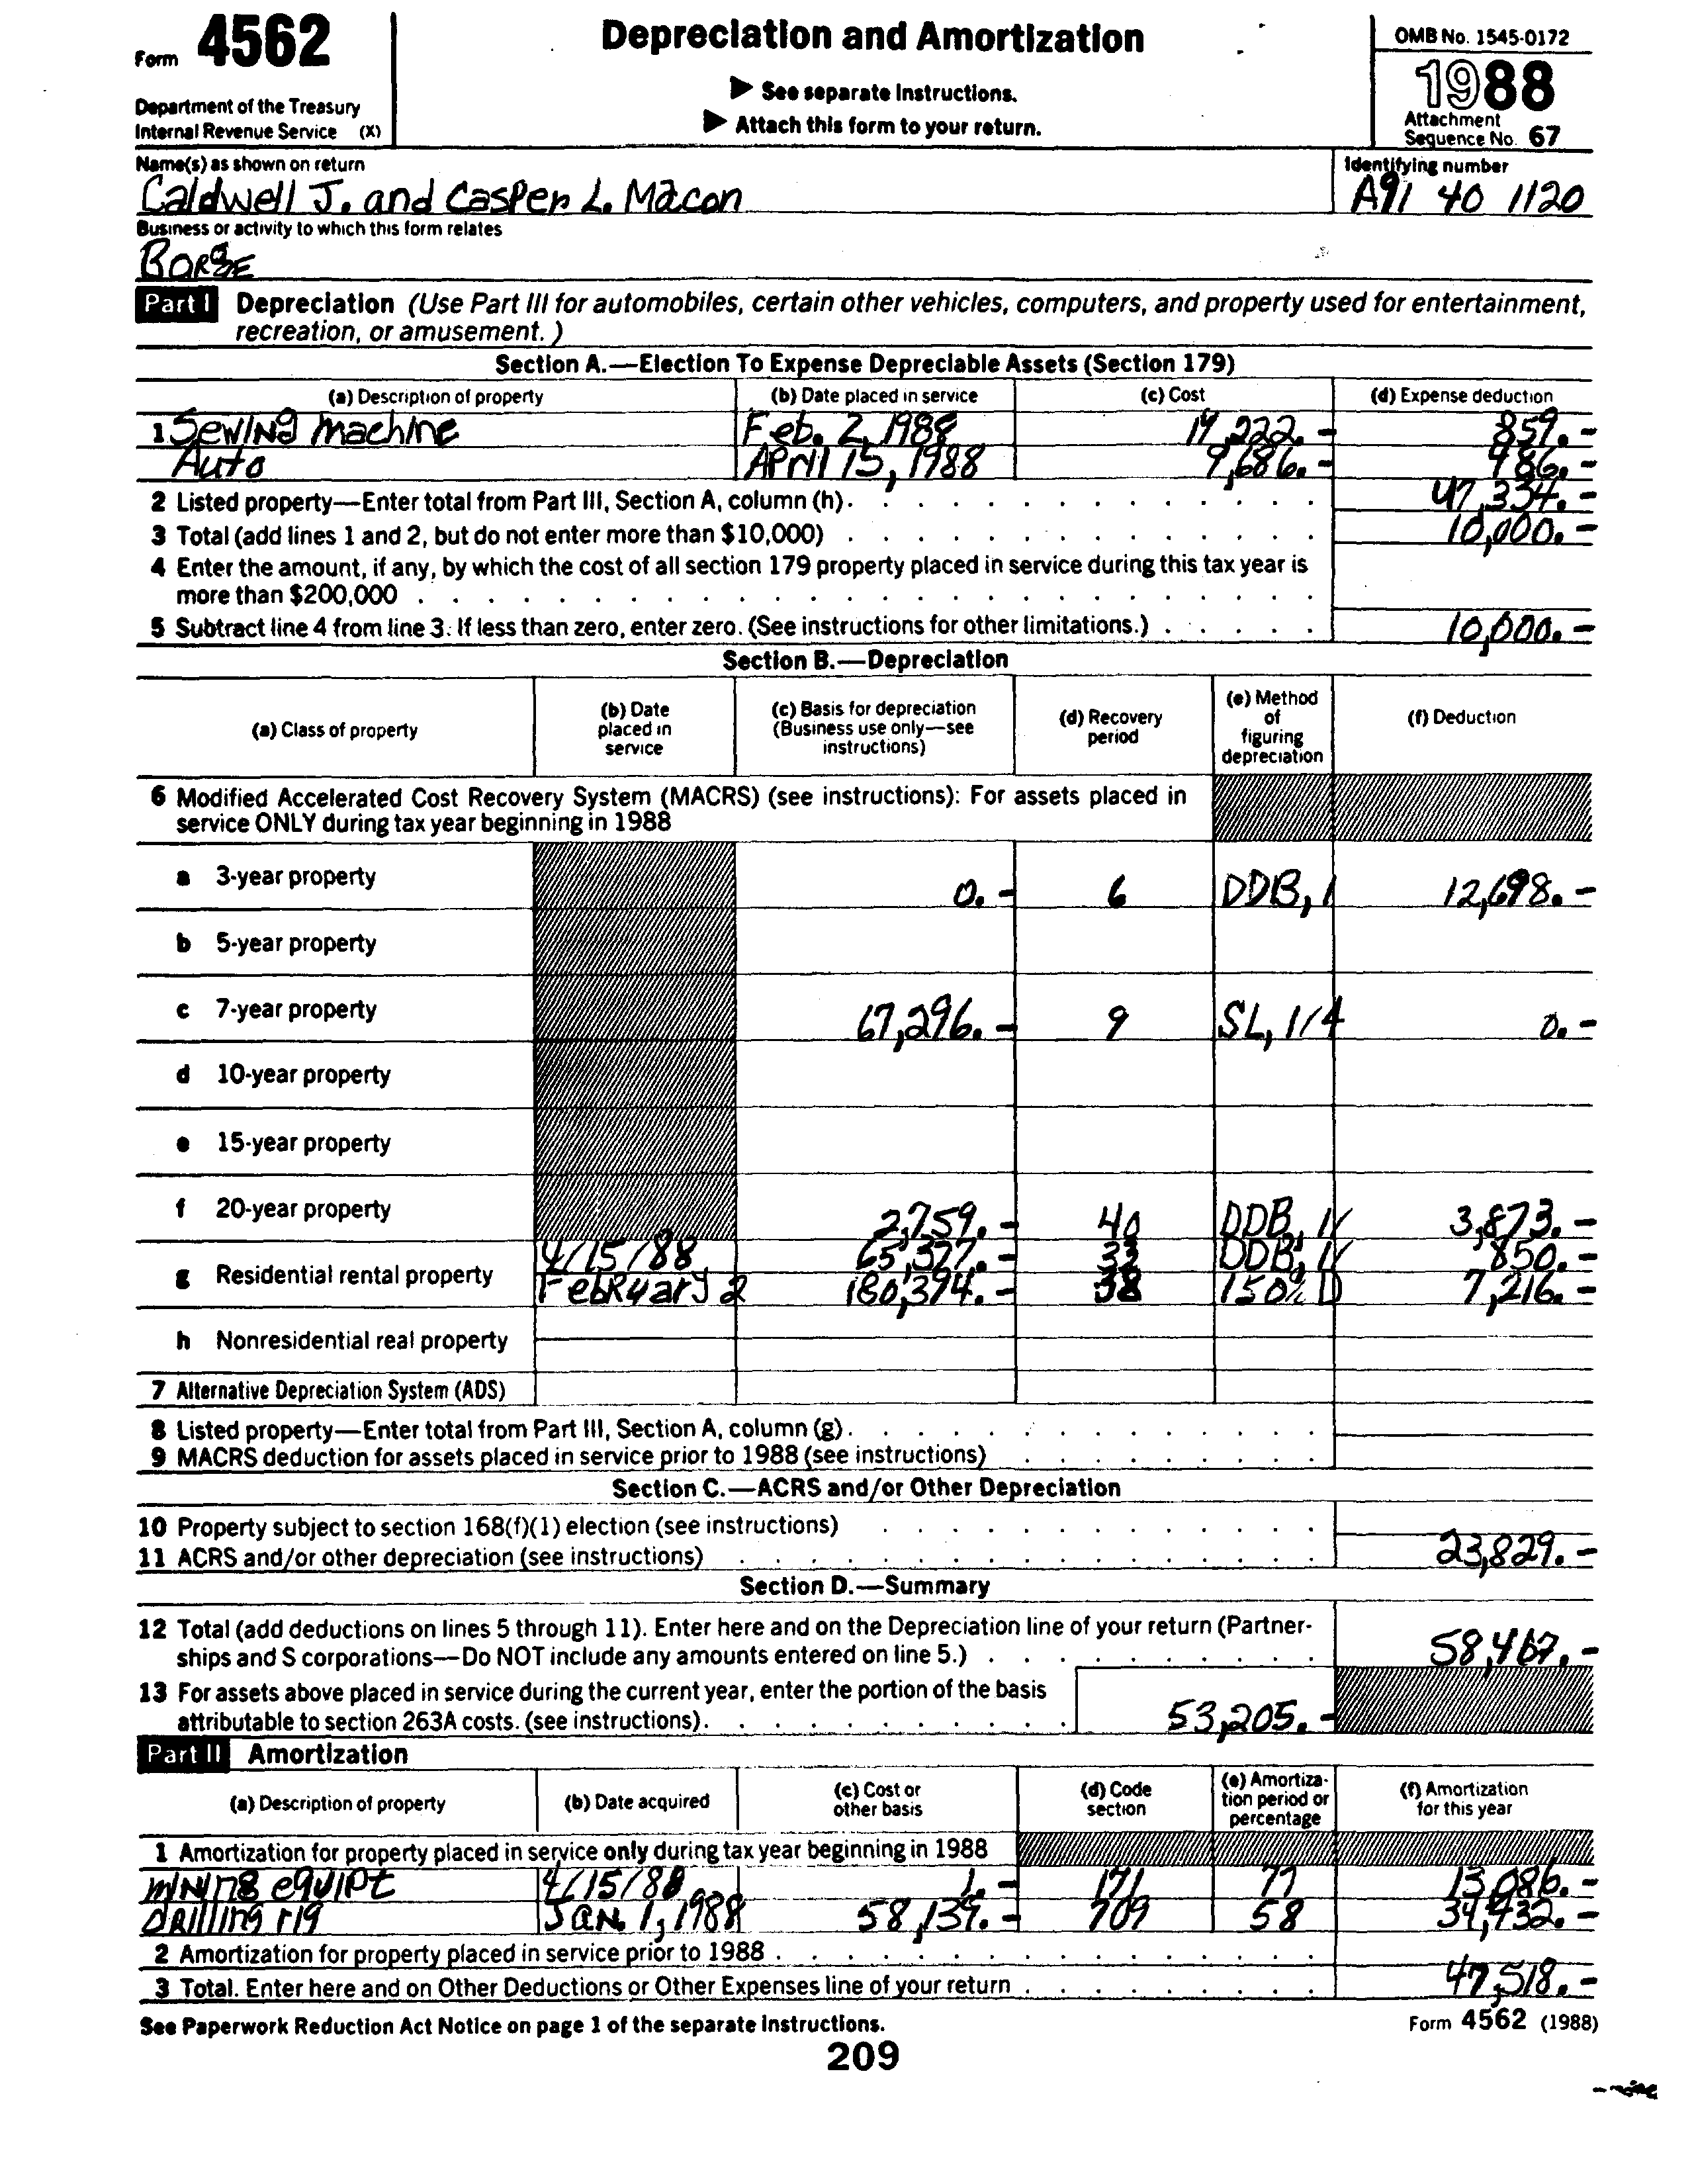 Form 4562
Department of the Treasury
Internal Revenue Service (X)
Depreciation and Amortization
▶ See separate Instructions.
▶ Attach this form to your return.
OMB No. 1545-0172
1988
Attachment
Sequence No. 67
Name(s) as shown on return
Caldwell J. and Casper L. Macon
Identifying number
A91 40 1120
Business or activity to which this form relates
Part I Depreciation (Use Part III for automobiles, certain other vehicles, computers, and property used for entertainment,
recreation, or amusement.)
Section A.—Election To Expense Depreciable Assets (Section 179)
(a) Description of property (b) Date placed in service (c) Cost (d) Expense deduction
1 Sewing machine Feb. 2, 1988 19,222.- 859.-
Auto April 15, 1988 9,686.- 986.-
2 Listed property—Enter total from Part III, Section A, column (h). 47,334.-
3 Total (add lines 1 and 2, but do not enter more than $10,000) 10,000.-
4 Enter the amount, if any, by which the cost of all section 179 property placed in service during this tax year is
more than $200,000
5 Subtract line 4 from line 3. If less than zero, enter zero. (See instructions for other limitations.) 10,000.-
Section B.—Depreciation
(a) Class of property (b) Date placed in service (c) Basis for depreciation (Business use only—see instructions) (d) Recovery period (e) Method of figuring depreciation (f) Deduction
6 Modified Accelerated Cost Recovery System (MACRS) (see instructions): For assets placed in
service ONLY during tax year beginning in 1988
a 3-year property 0.- 6 DDB, 1 12,698.-
b 5-year property
c 7-year property 67,296.- 9 SL, 1/4 0.-
d 10-year property
e 15-year property
f 20-year property 2,759.- 40 DDB, 1/ 3,873.-
4/15/88 65,377.- 33 DDB, 1/ 850.-
g Residential rental property February 2 180,394.- 38 150% D 7,216.-
h Nonresidential real property
7 Alternative Depreciation System (ADS)
8 Listed property—Enter total from Part III, Section A, column (g).
9 MACRS deduction for assets placed in service prior to 1988 (see instructions)
Section C.—ACRS and/or Other Depreciation
10 Property subject to section 168(f)(1) election (see instructions)
11 ACRS and/or other depreciation (see instructions) 23,829.-
Section D.—Summary
12 Total (add deductions on lines 5 through 11). Enter here and on the Depreciation line of your return (Partner-
ships and S corporations—Do NOT include any amounts entered on line 5.) 58,467.-
13 For assets above placed in service during the current year, enter the portion of the basis
attributable to section 263A costs. (see instructions). 53,205.-
Part II Amortization
(a) Description of property (b) Date acquired (c) Cost or other basis (d) Code section (e) Amortization period or percentage (f) Amortization for this year
1 Amortization for property placed in service only during tax year beginning in 1988
mining equipt 4/15/88 1.- 171 77 13,086.-
drilling rig Jan. 1, 1988 58,139.- 709 58 34,432.-
2 Amortization for property placed in service prior to 1988
3 Total. Enter here and on Other Deductions or Other Expenses line of your return 47,518.-
See Paperwork Reduction Act Notice on page 1 of the separate Instructions.
Form 4562 (1988)
209